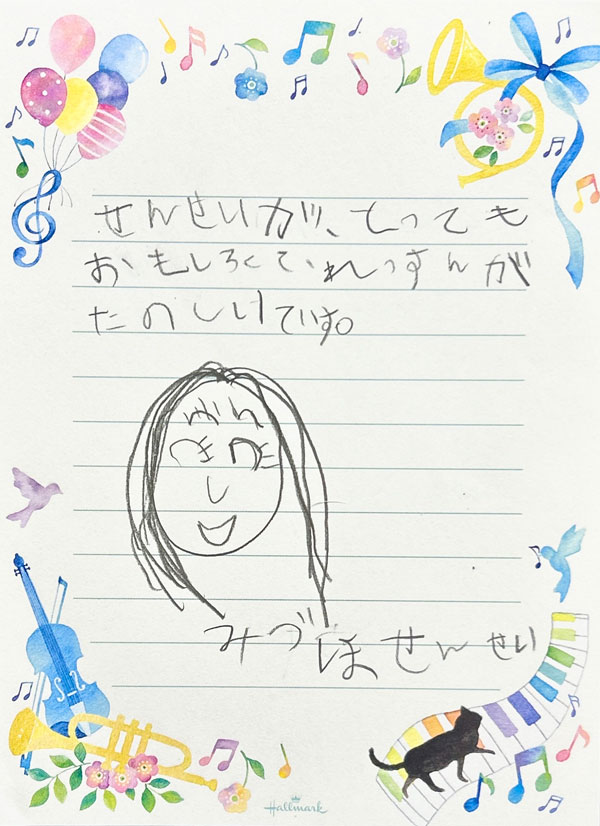 せんせいが、とっても
おもしろくて、れっすんが
たのしいです。
みづほせんせい
Hallmark